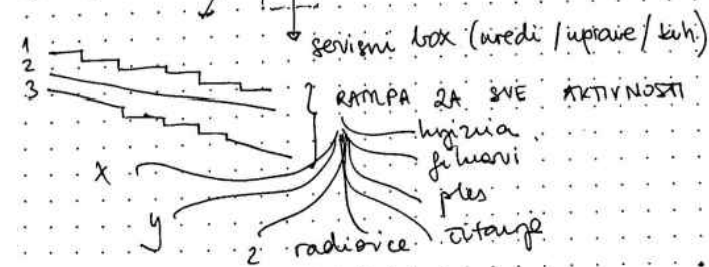 servisni box (uredi / uprave / kuh.)
1
2
3
RAMPA ZA SVE AKTIVNOSTI
higizna
filmovi
x
ples
y
čitanje
z
radionice